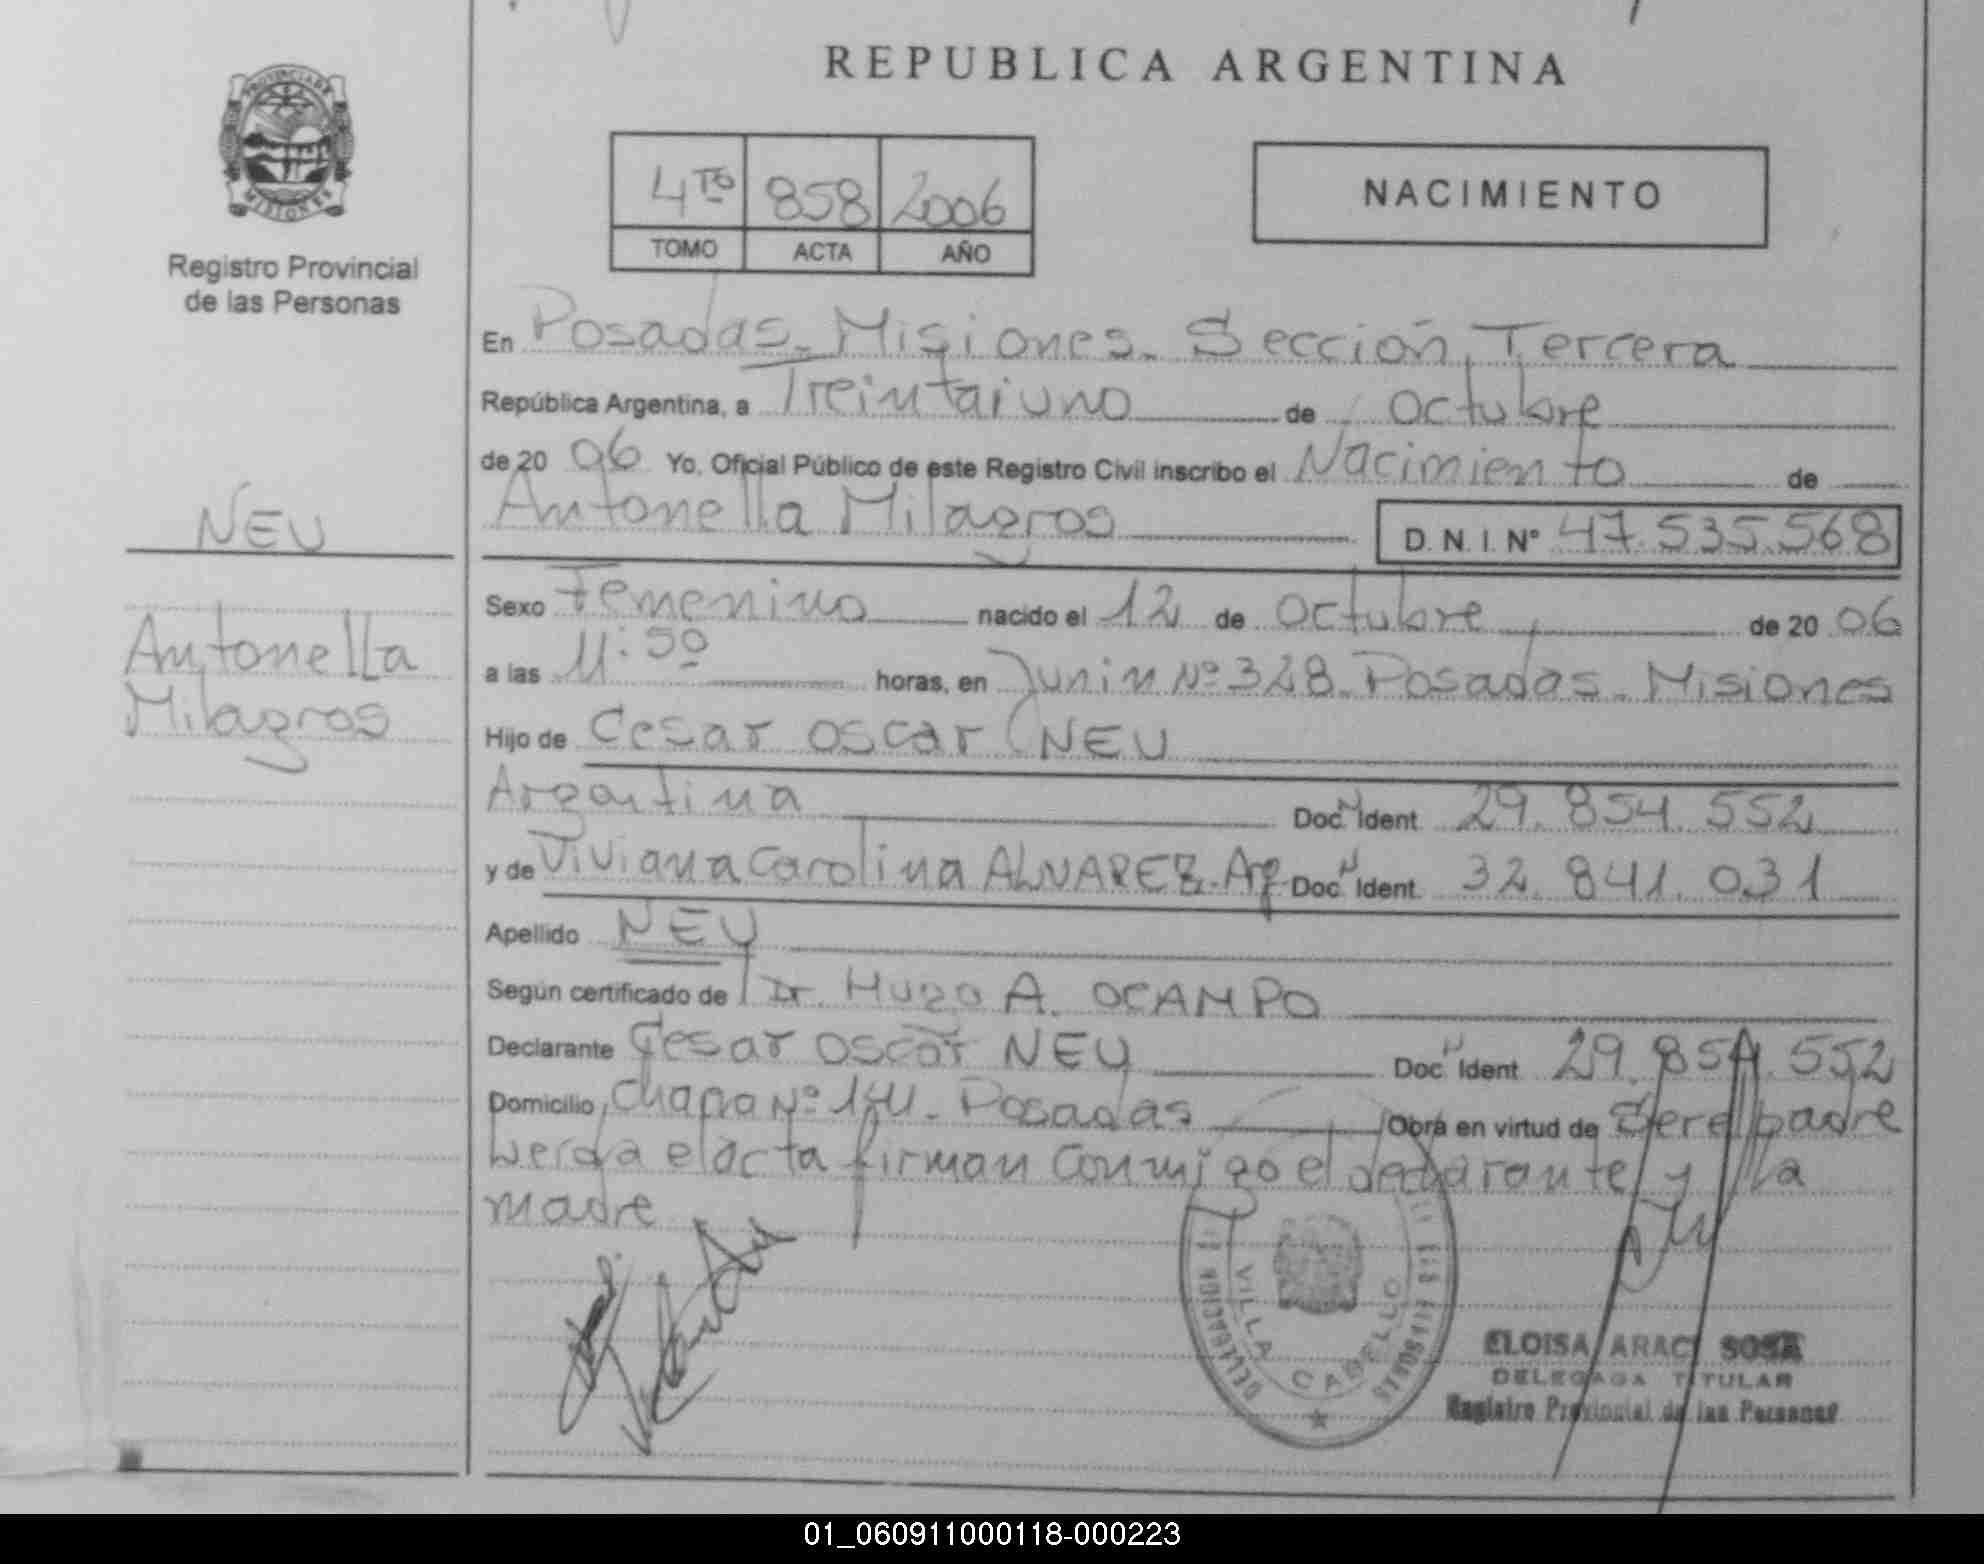 REPUBLICA ARGENTINA
PROVINCIA DE
MISIONES
Registro Provincial
de las Personas
4TO 858 2006
TOMO ACTA AÑO
NACIMIENTO
En Posadas - Misiones - Sección Tercera
República Argentina, a Treintaiuno de Octubre
de 20 06 Yo, Oficial Público de este Registro Civil inscribo el Nacimiento de
Antonella Milagros D. N. I. Nº 47.535.568
NEU
Antonella
Milagros
Sexo Femenino nacido el 12 de Octubre de 20 06
a las 11:50 horas, en Junin Nº 328 - Posadas - Misiones
Hijo de Cesar Oscar NEU
Argentina Doc. Ident. 29.854.552
y de Viviana Carolina ALVAREZ - Arg. Doc. Ident. 32.841.031
Apellido NEU
Según certificado de Dr. Hugo A. OCAMPO
Declarante Cesar Oscar NEU Doc. Ident. 29.854.552
Domicilio Chapa Nº - Posadas Obra en virtud de Ser el padre
Leida el acta firman Conmigo el declarante y la
madre
DELEGACION
VILLA CABELLO
ELOISA ARACI SOSA
DELEGADA TITULAR
Registro Provincial de las Personas
01_060911000118-000223